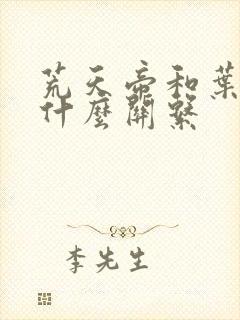 荒天帝和葉
什麼關繫
李先生